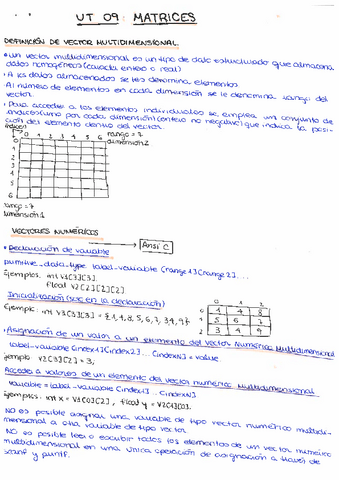 UT 09: MATRICES
DEFINICIÓN DE VECTOR MULTIDIMENSIONAL.
• Un vector multidimensional es un tipo de dato estructurado que almacena
datos homogéneos (carácter entero o real)
• A los datos almacenados se les denomina elementos
Al número de elementos en cada dimensión se le denomina rango del
vector.
• Para acceder a los elementos individuales se emplea un conjunto de
índices (uno por cada dimensión) (entero no negativo) que indica la posi-
ción del elemento dentro del vector.
índices
0 1 2 3 4 5 6 rango = 7
dimensión 2
0
1
2
3
4
5
6
rango = 7
dimensión 1
VECTORES NUMÉRICOS
Ansi C
• Declaración de variable
primitive_data_type label_variable [range1][range2]...
Ejemplos: int V3[3][3].
float V2[2][2][2]
Inicialización (solo en la declaración)
Ejemplo: int V3[3][3] = {1,4,8,5,6,7,3,4,9}
0 1 2
0 1 4 8
1 5 6 7
2 3 4 9
• Asignación de un valor a un elemento del vector Numérico Multidimensional
label_variable [index1][index2]...[indexN] = value.
Ejemplo V2[3][2] = 3,
Acceder a valores de un elemento del vector numérico Multidimensional
variable = label_variable [index1]...[indexN]
Ejemplos: int x = V3[0][2], float y = V2[4][0].
NO es posible asignar una variable de tipo vector numérico multidi-
mensional a otra variable de tipo vector.
NO es posible leer o escribir todos los elementos de un vector numérico
multidimensional en una única operación de asignación a través de
scanf y printf.